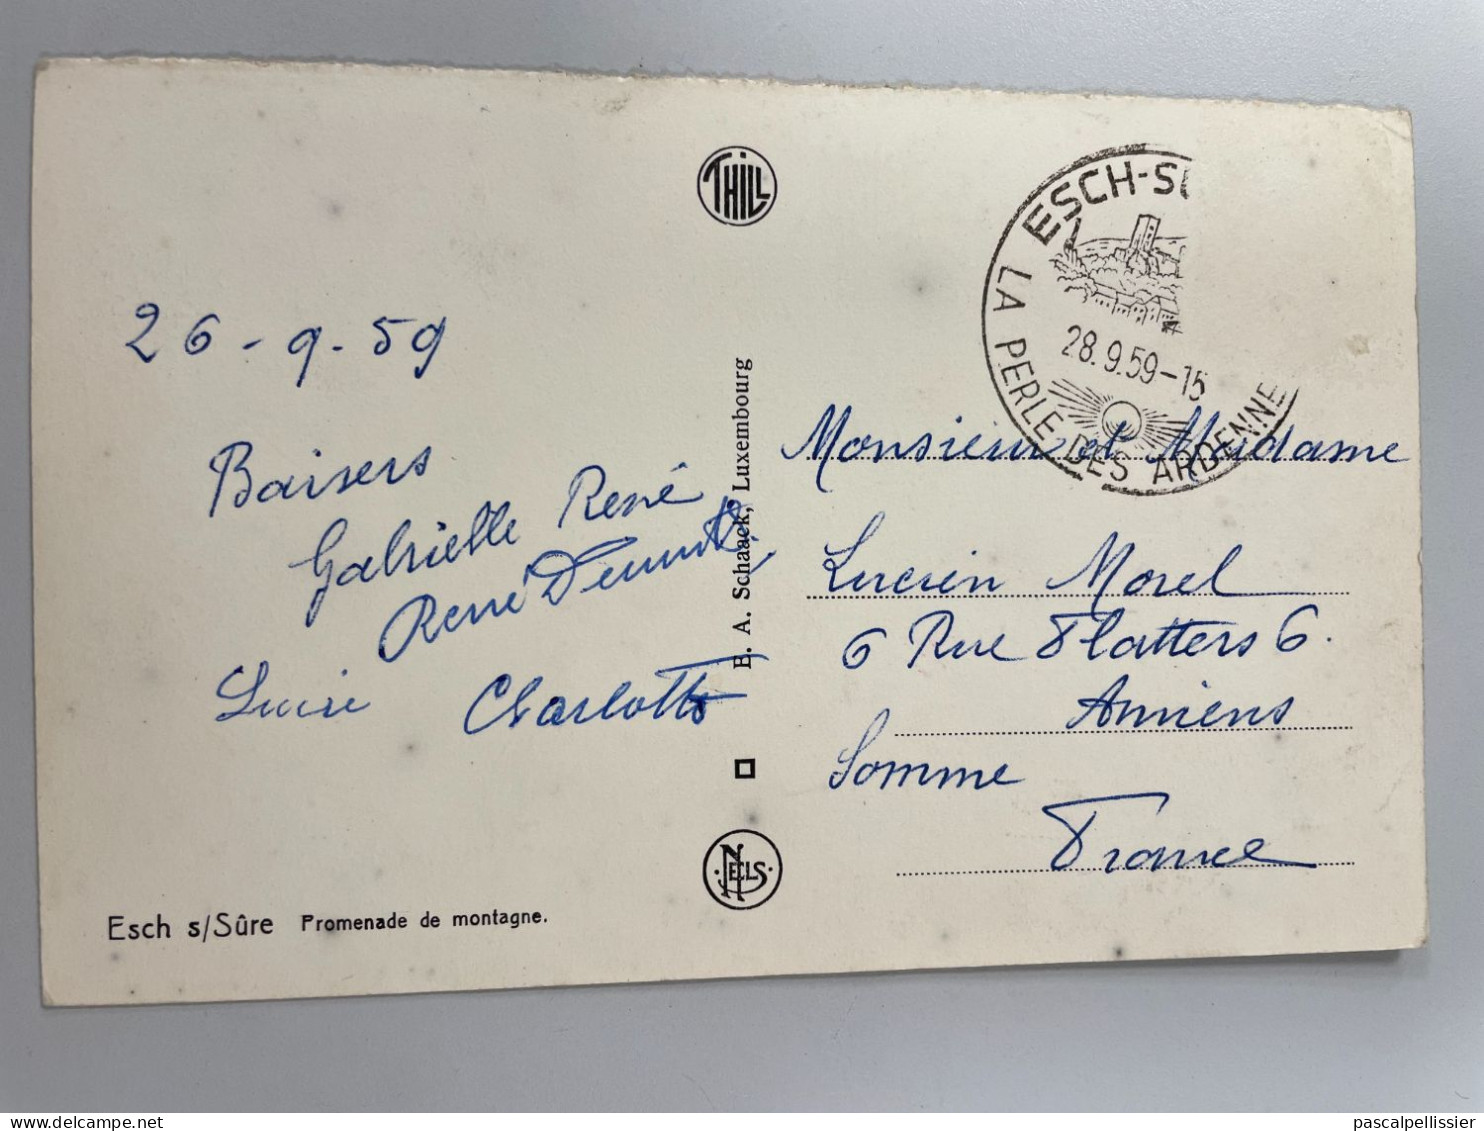 THILL
26-9-59
Baisers
Gabrielle René
René
Lucie Charlotte
E. A. Schaack, Luxembourg
NELS
Esch s/Sûre Promenade de montagne.
ESCH-S
28.9.59-15
LA PERLE DES ARDENNE
Monsieur et Madame
Lucien Morel
6 Rue Flatters 6.
Amiens
Somme
France
pascalpellissier